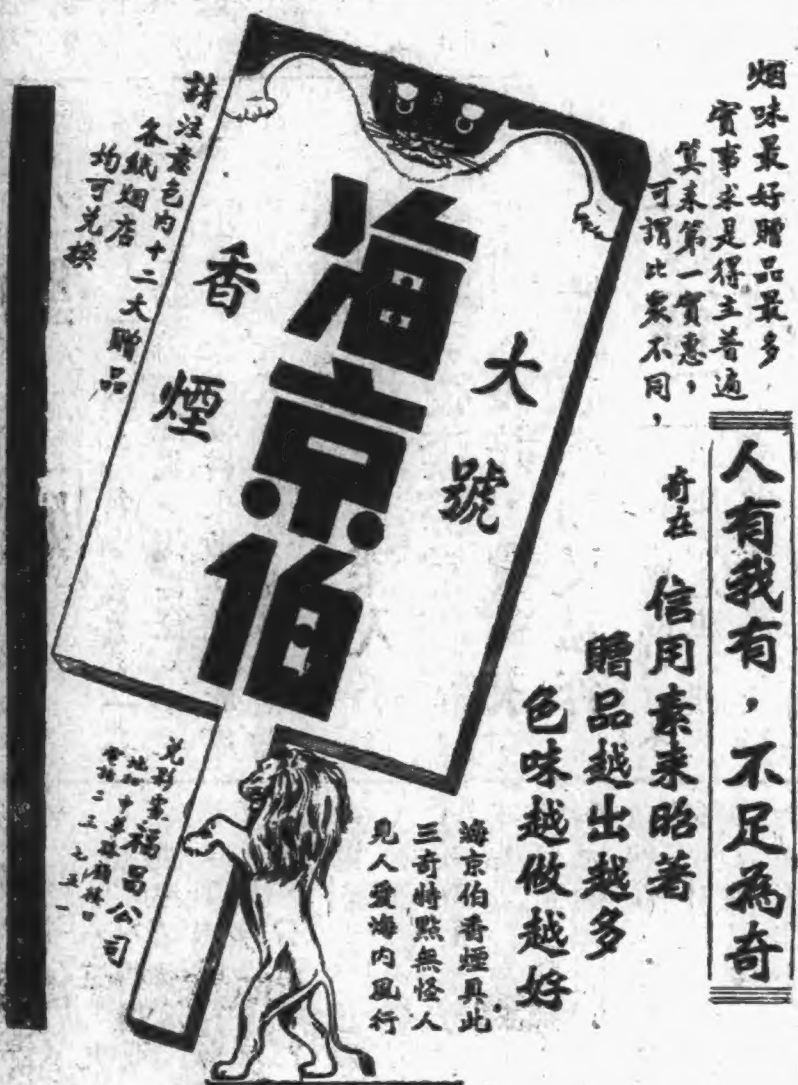 烟味最好贈品最多
實事求是得主普遍
算來第一實惠，
可謂比衆不同，
人有我有，不足為奇
奇在
信用素來昭著
贈品越出越多
色味越做越好
海京伯香煙具此
三奇特點無怪人
見人愛海内風行
大號
海京伯
香煙
請注意包内十二大贈品
各紙烟店
均可兑換
兑彩處福昌公司
地址中華路
電話二三七五一